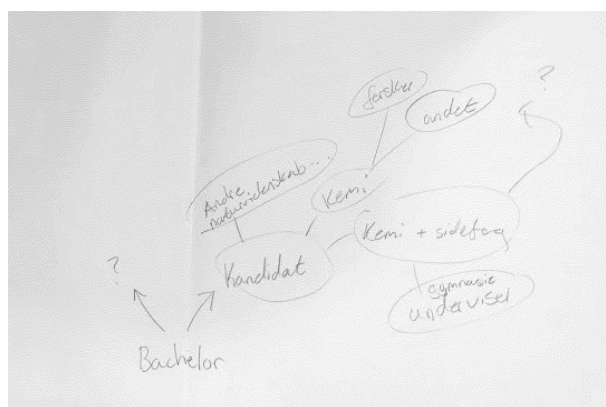 ?
forsker
andet
Andre
naturvidenskab...
Kemi
Kemi + sidefag
?
Kandidat
gymnasie
underviser
Bachelor